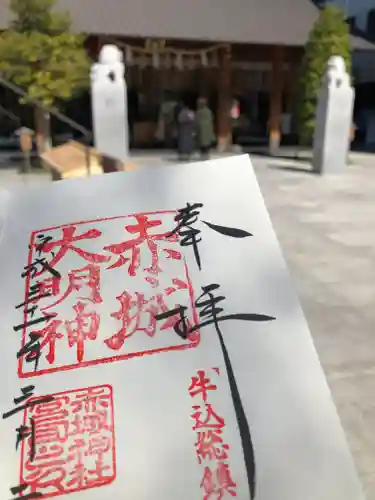 奉拝
赤城
大明神
牛込総鎮
赤城神社
平成三十一年三月二